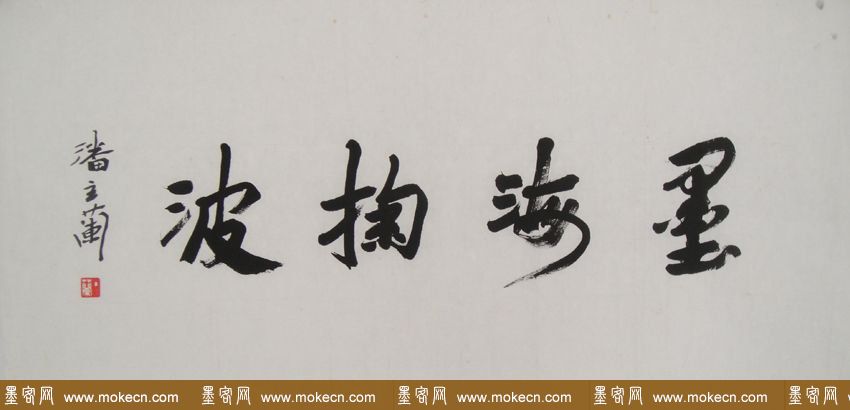 墨海掬波
潘主蘭
墨客网 www.mokecn.com 墨客网 www.mokecn.com 墨客网 www.mokecn.com 墨客网 www.mokecn.com 墨客网 www